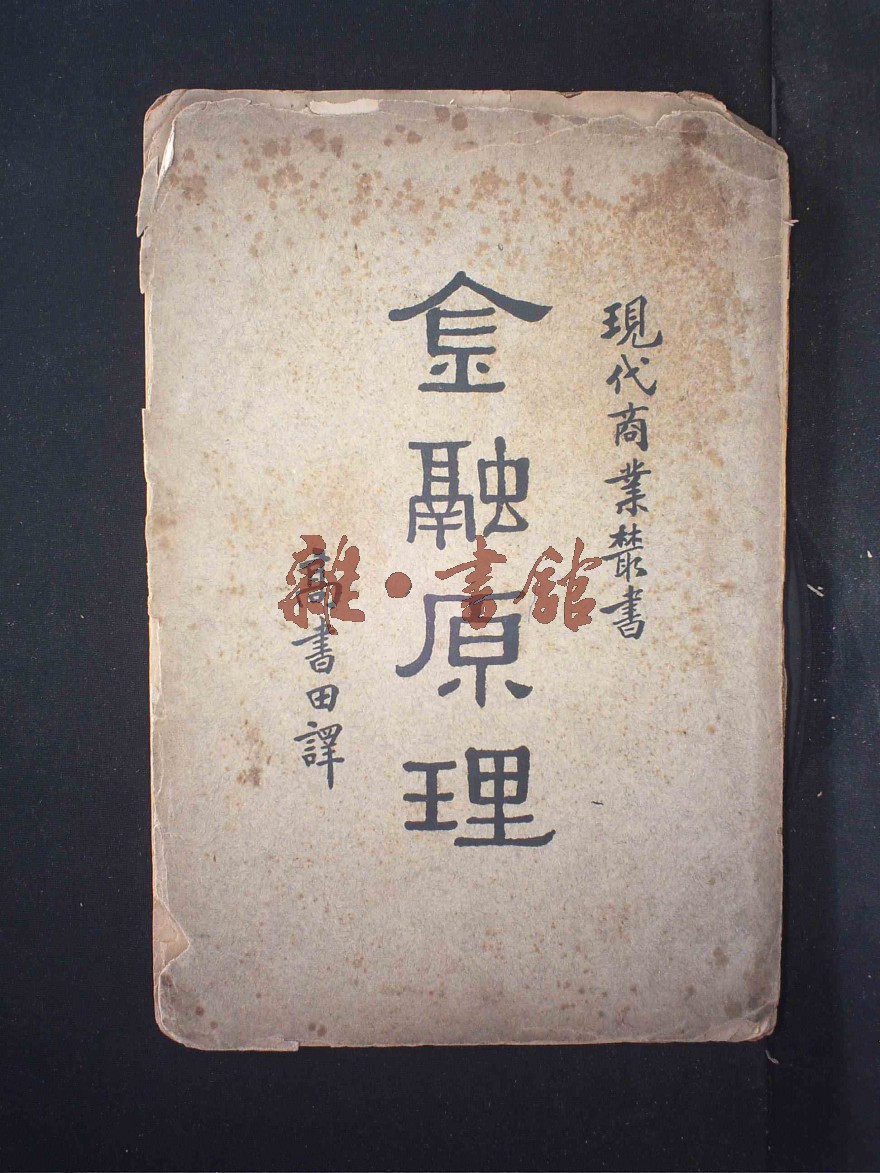 現代商業叢書
金融原理
高書田譯
雜·書館